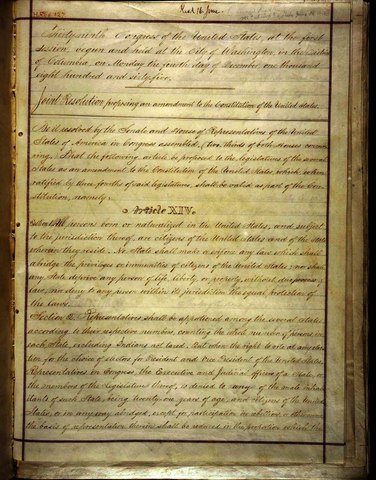 Thirty-ninth Congress of the United States, at the first
session, begun and held at the City of Washington, in the District
of Columbia, on Monday, the fourth day of December, one thousand
eight hundred and sixty-five.
Joint Resolution proposing an amendment to the Constitution of the United States.
Be it resolved by the Senate and House of Representatives of the United
States of America in Congress assembled, (two thirds of both Houses concur-
ring,) That the following article be proposed to the legislatures of the several
States as an amendment to the Constitution of the United States, which, when
ratified by three fourths of said legislatures, shall be valid as part of the Con-
stitution, namely:
Article XIV.
Section 1. All persons born or naturalized in the United States, and subject
to the jurisdiction thereof, are citizens of the United States and of the State
wherein they reside. No State shall make or enforce any law which shall
abridge the privileges or immunities of citizens of the United States; nor shall
any State deprive any person of life, liberty, or property, without due process of
law; nor deny to any person within its jurisdiction the equal protection of
the laws.
Section 2. Representatives shall be apportioned among the several States
according to their respective numbers, counting the whole number of persons in
each State, excluding Indians not taxed. But when the right to vote at any elec-
tion for the choice of electors for President and Vice President of the United States,
Representatives in Congress, the Executive and Judicial officers of a State, or
the members of the Legislature thereof, is denied to any of the male inhab-
itants of such State, being twenty-one years of age, and citizens of the United
States, or in any way abridged, except for participation in rebellion, or other crime,
the basis of representation therein shall be reduced in the proportion which the